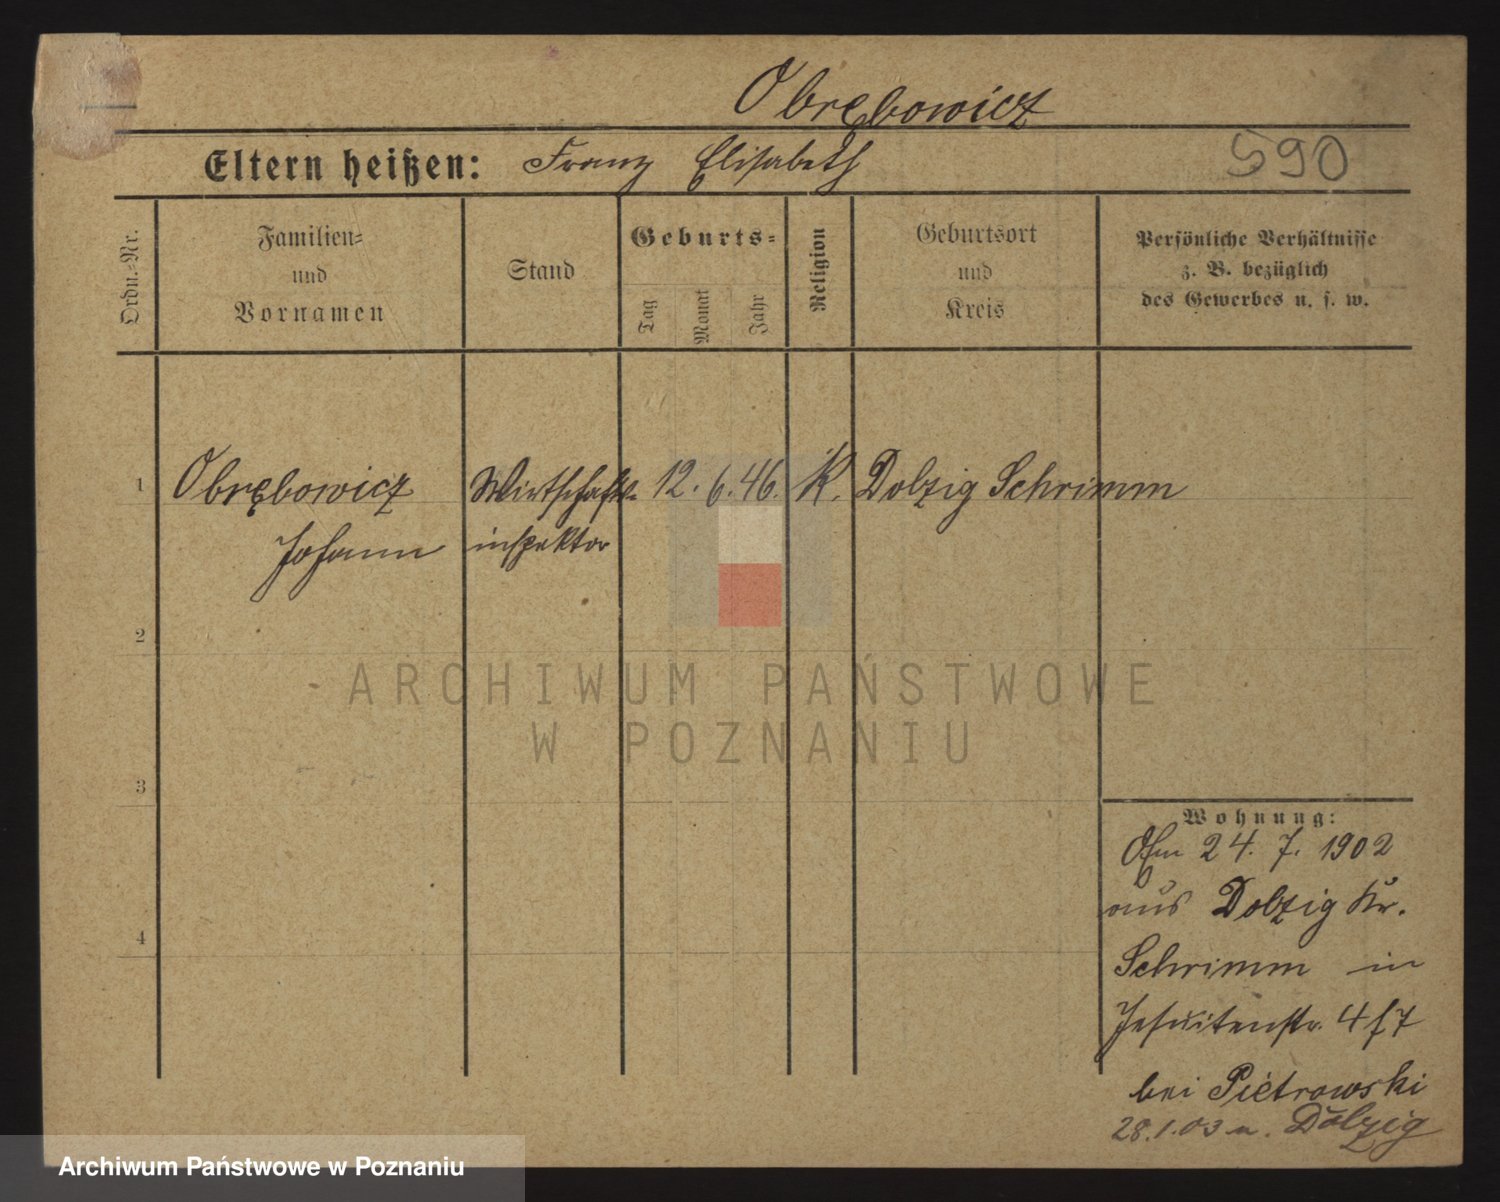 Obrębowicz
Eltern heißen: Franz Elisabeth
590
Ordn.-Nr.
Familien-
und
Vornamen
Stand
Geburts-
Tag
Monat
Jahr
Religion
Geburtsort
und
Kreis
Persönliche Verhältnisse
z. B. bezüglich
des Gewerbes u. s. w.
1 Obrębowicz Wirtschafts- 12. 6. 46. K. Dolzig Schrimm
Johann inspektor
2
3
4
Wohnung:
24. 7. 1902
aus Dolzig Kr.
Schrimm in
Jesuitenstr. 4 f 7
bei Pietrowski
28.1.03 n. Dolzig
ARCHIWUM PAŃSTWOWE
W POZNANIU
Archiwum Państwowe w Poznaniu